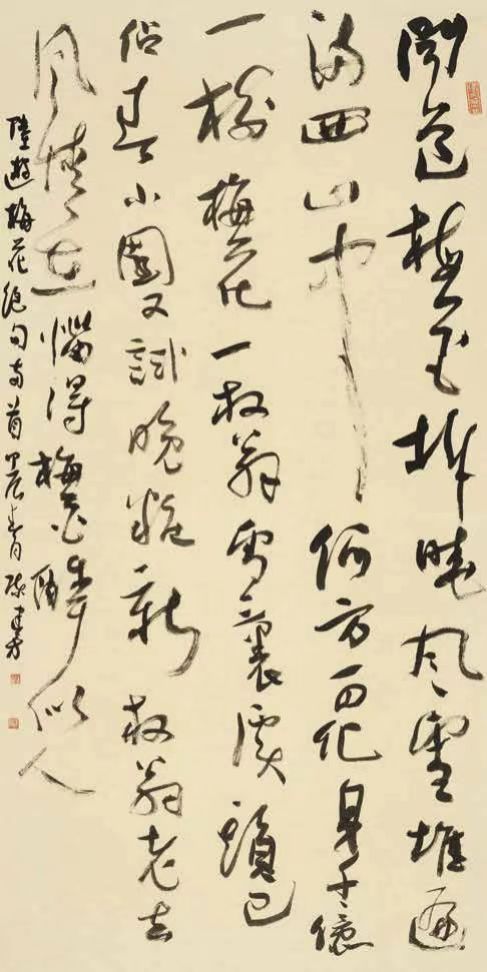 聞道梅花坼曉风雪堆遍
滿四山中何方可化身千億
一樹梅花一放翁雪裏溪頭已
佔春小園又試晚粧新放翁老去
风情在惱得梅花醉似人
陸遊梅花絕句两首甲辰春月